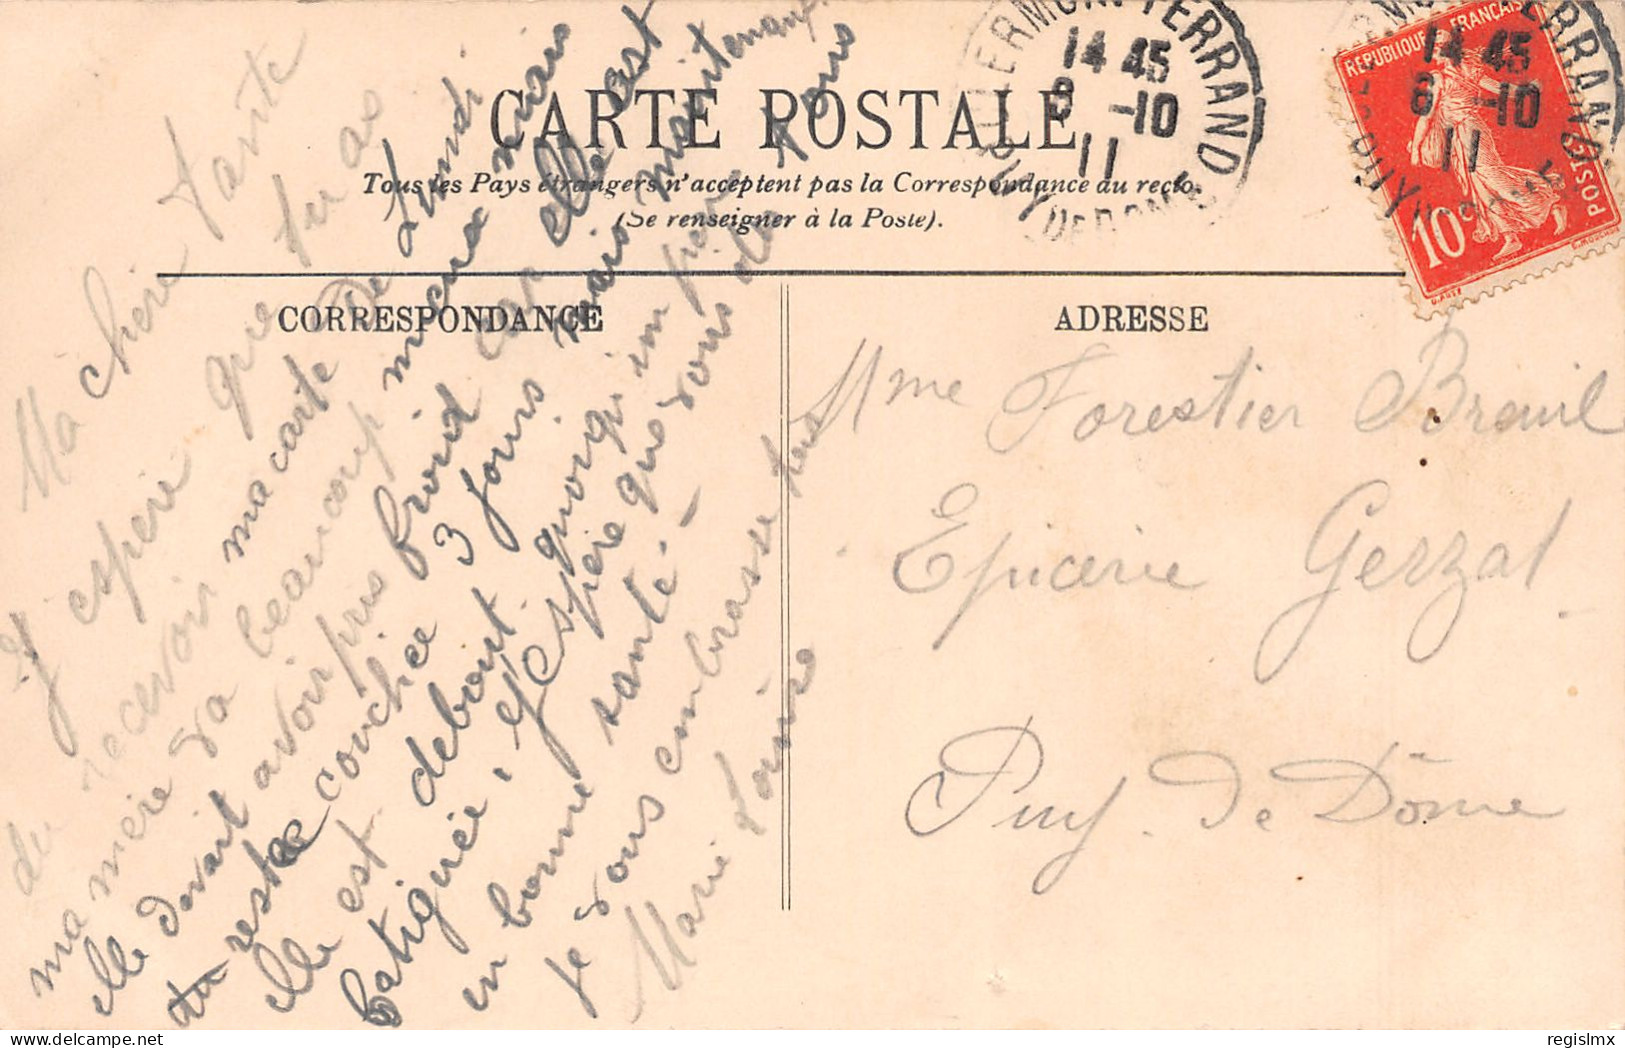 CARTE POSTALE
Tous les Pays étrangers n'acceptent pas la Correspondance au recto.
(Se renseigner à la Poste).
CORRESPONDANCE
Ma chère tante
J'espère que tu as
du recevoir ma carte de Lundi
ma mère va beaucoup mieux mais
elle devait avoir pris froid car elle est
restée couchée 3 jours mais maintenant
elle est debout quoiqu'un peu
fatiguée, j'espère que vous êtes tous
en bonne santé.
Je vous embrasse tous
Marie Louise
ADRESSE
Mme Forestier Breuil
Epicerie Gerzat
Puy-de-Dôme
CLERMONT FERRAND
14 45
6 -10
11
PUY DE DOME
REPUBLIQUE FRANÇAISE
10
POSTES
14 45
6 -10
11
regislmx